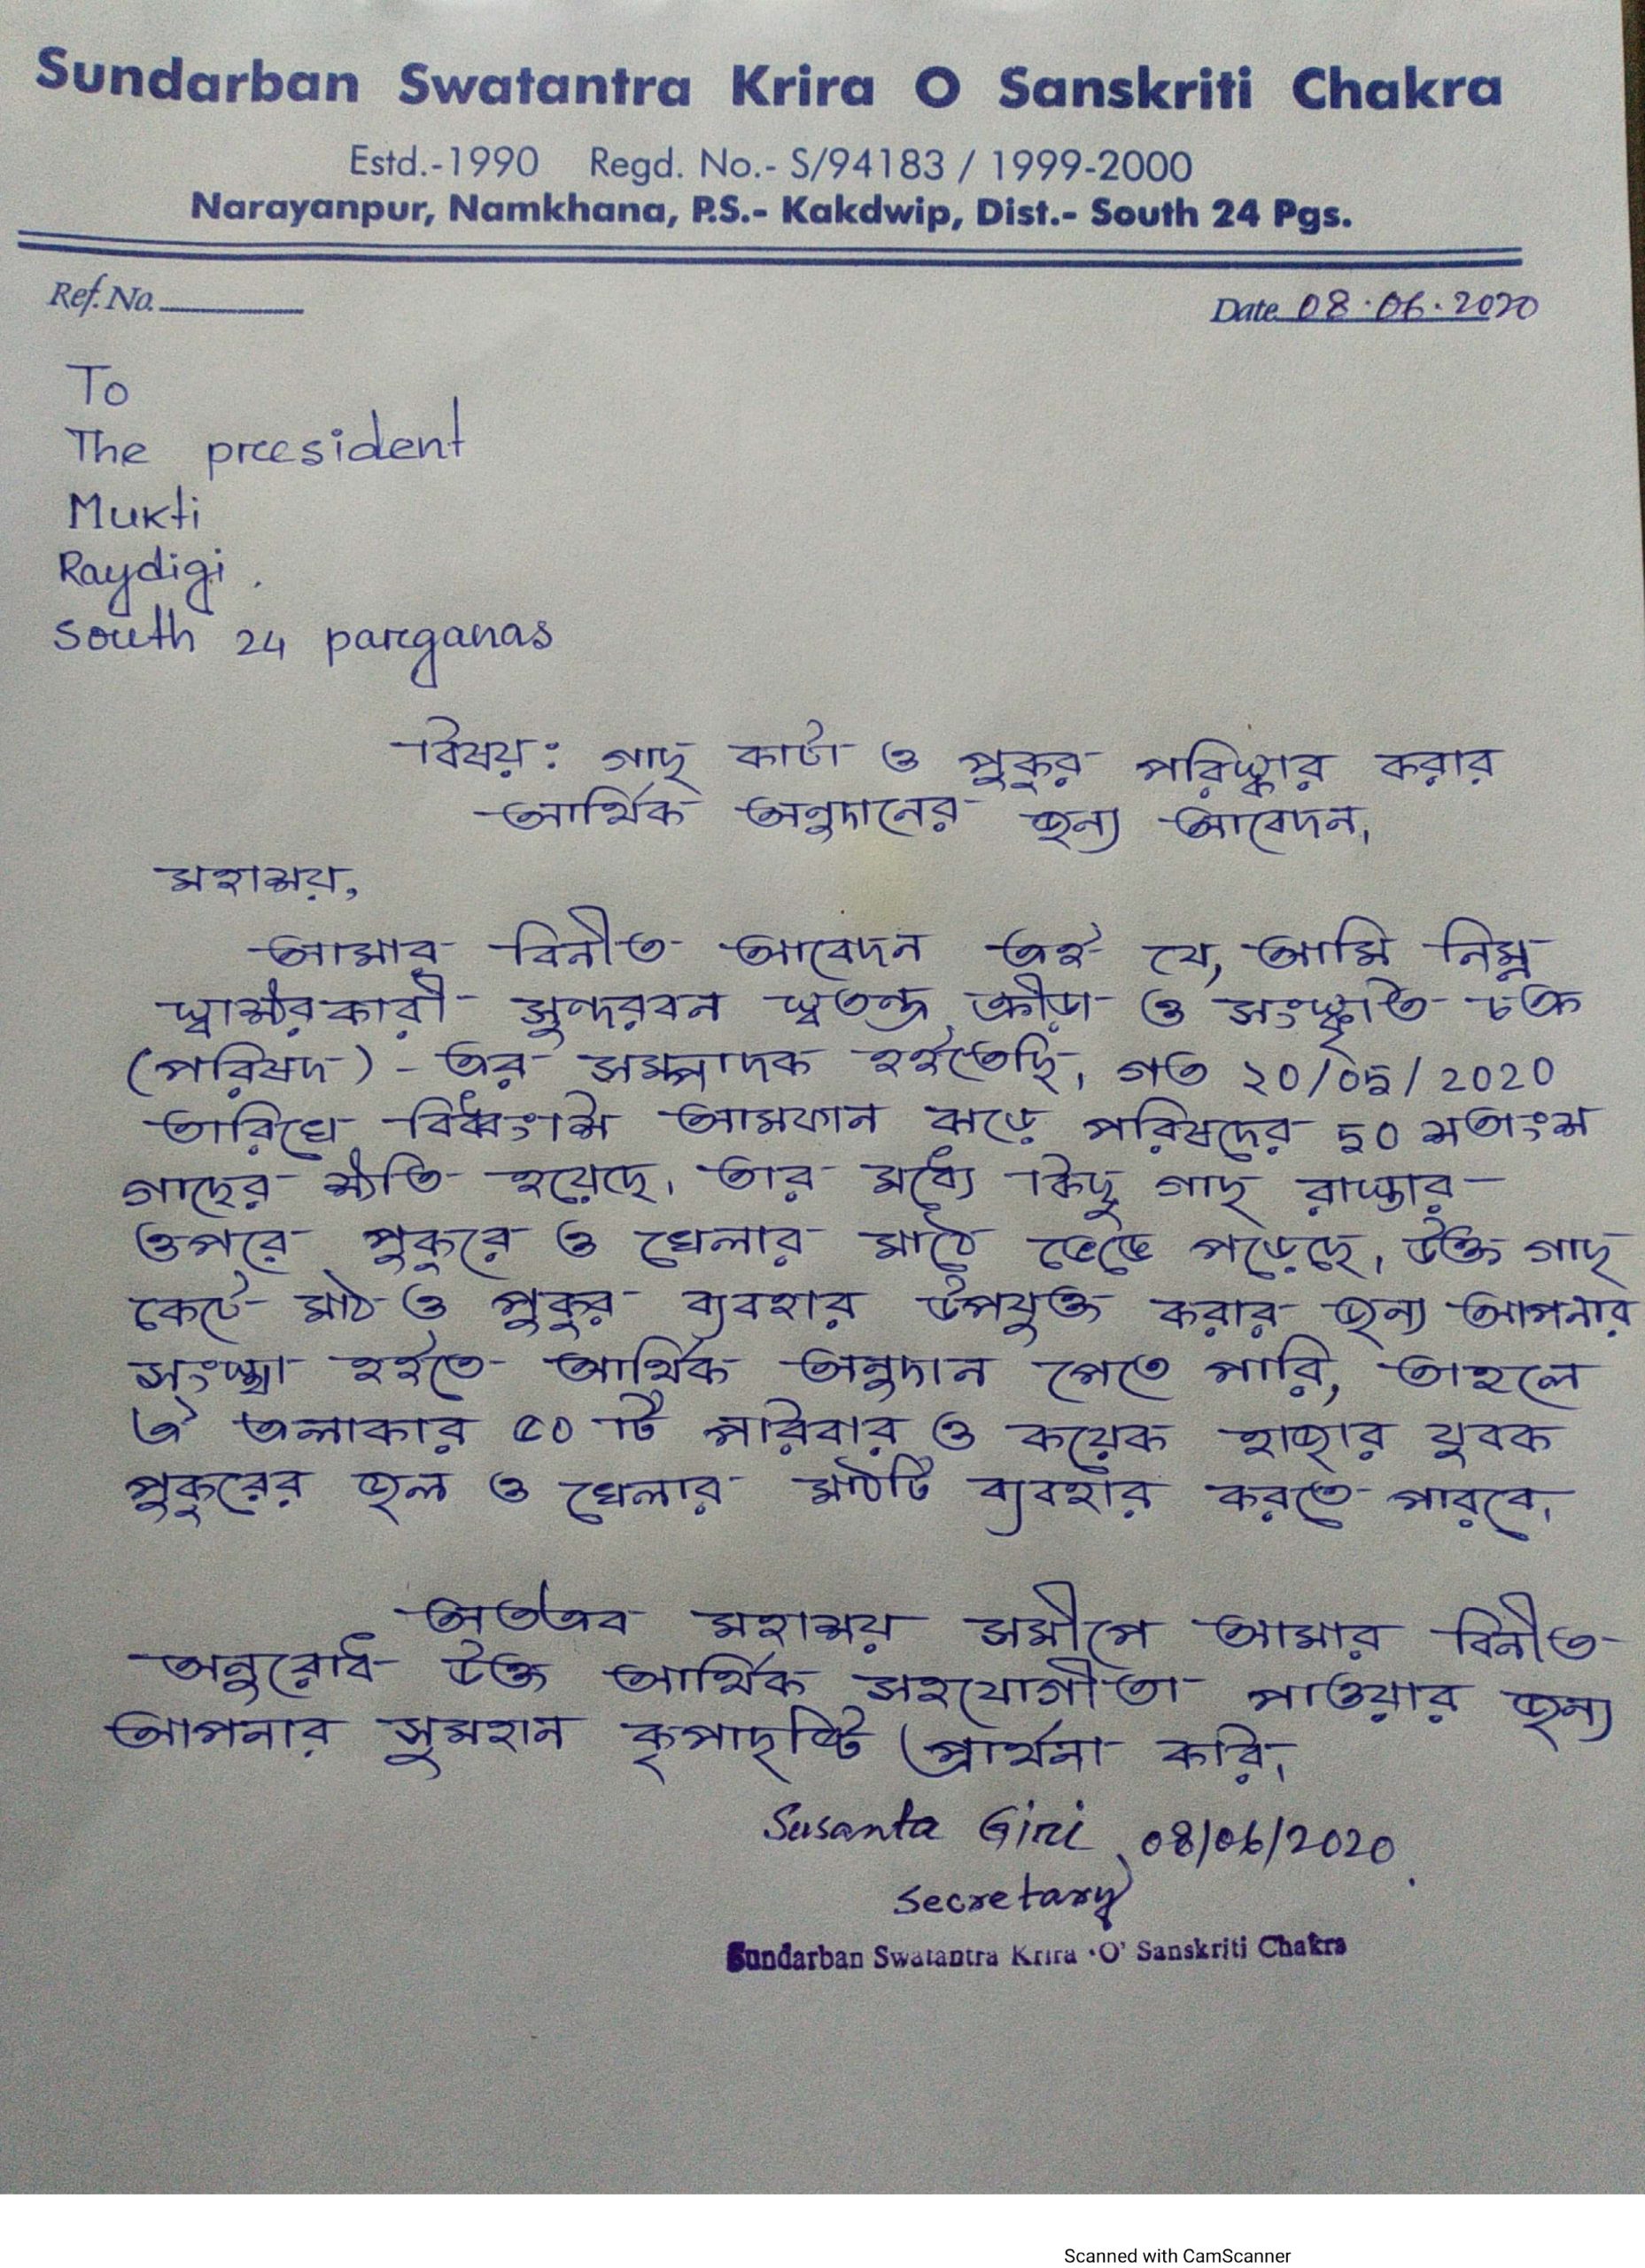 Sundarban Swatantra Krira O Sanskriti Chakra
Estd.-1990 Regd. No.- S/94183 / 1999-2000
Narayanpur, Namkhana, P.S.- Kakdwip, Dist.- South 24 Pgs.
Ref. No.
Date 08.06.2020
To
The president
Mukti
Raydigi.
South 24 parganas
বিষয়: গাছ কাটা ও পুকুর পরিস্কার করার
আর্থিক অনুদানের জন্য আবেদন।
মহাশয়,
আমার বিনীত আবেদন এই যে, আমি নিম্ন
স্বাক্ষরকারী সুন্দরবন স্বতন্ত্র ক্রীড়া ও সংস্কৃতি চক্র
(পরিষদ) - এর সম্পাদক হইতেছি। গত ২০/০৫/2020
তারিখে বিধ্বংসি আমফান ঝড়ে পরিষদের ৮০ শতাংশ
গাছের ক্ষতি হয়েছে। তার মধ্যে কিছু গাছ রাস্তার
ওপরে পুকুরে ও খেলার মাঠে ভেঙে পড়েছে। উক্ত গাছ
কেটে মাঠ ও পুকুর ব্যবহার উপযুক্ত করার জন্য আপনার
সংস্থা হইতে আর্থিক অনুদান পেতে পারি, তাহলে
ঐ এলাকার ৫০ টি পরিবার ও কয়েক হাজার যুবক
পুকুরের জল ও খেলার মাঠটি ব্যবহার করতে পারবে।
অতএব মহাশয় সমীপে আমার বিনীত
অনুরোধ উক্ত আর্থিক সহযোগীতা পাওয়ার জন্য
আপনার সুমহান কৃপাদৃষ্টি প্রার্থনা করি।
Susanta Giri 08/06/2020
Secretary
Sundarban Swatantra Krira 'O' Sanskriti Chakra
Scanned with CamScanner